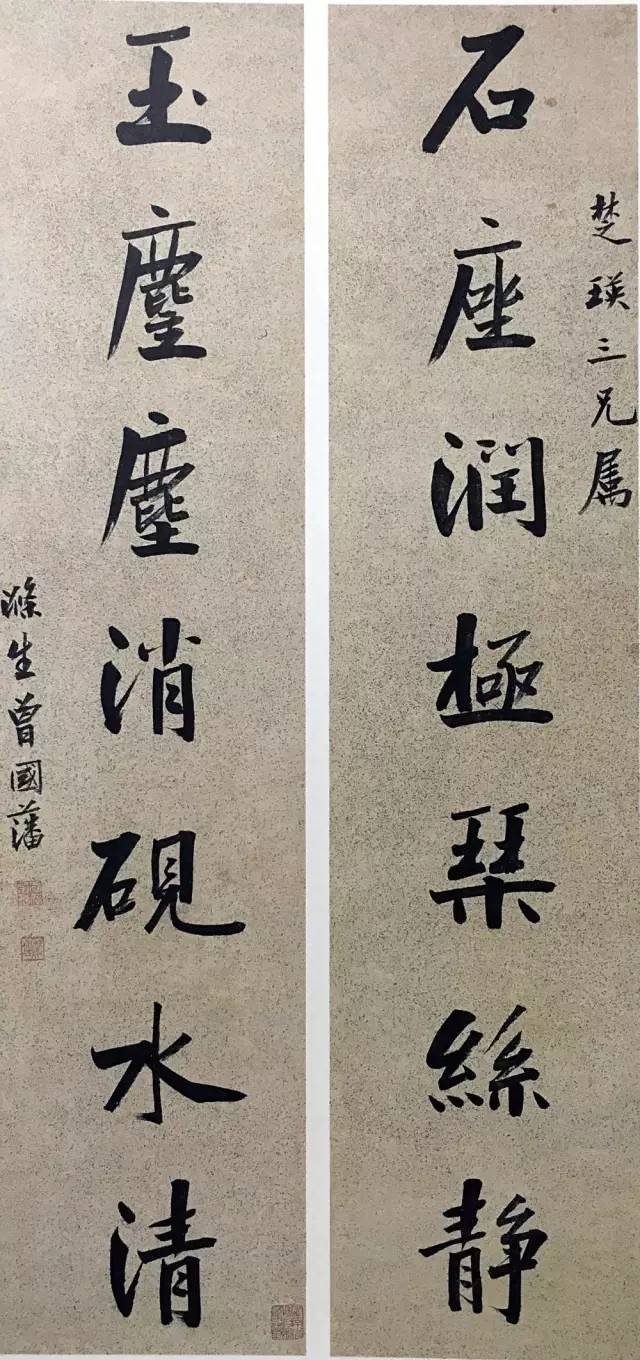 楚瑛三兄属
石座潤極琹絲靜
玉麈塵消硯水清
滌生曾國藩